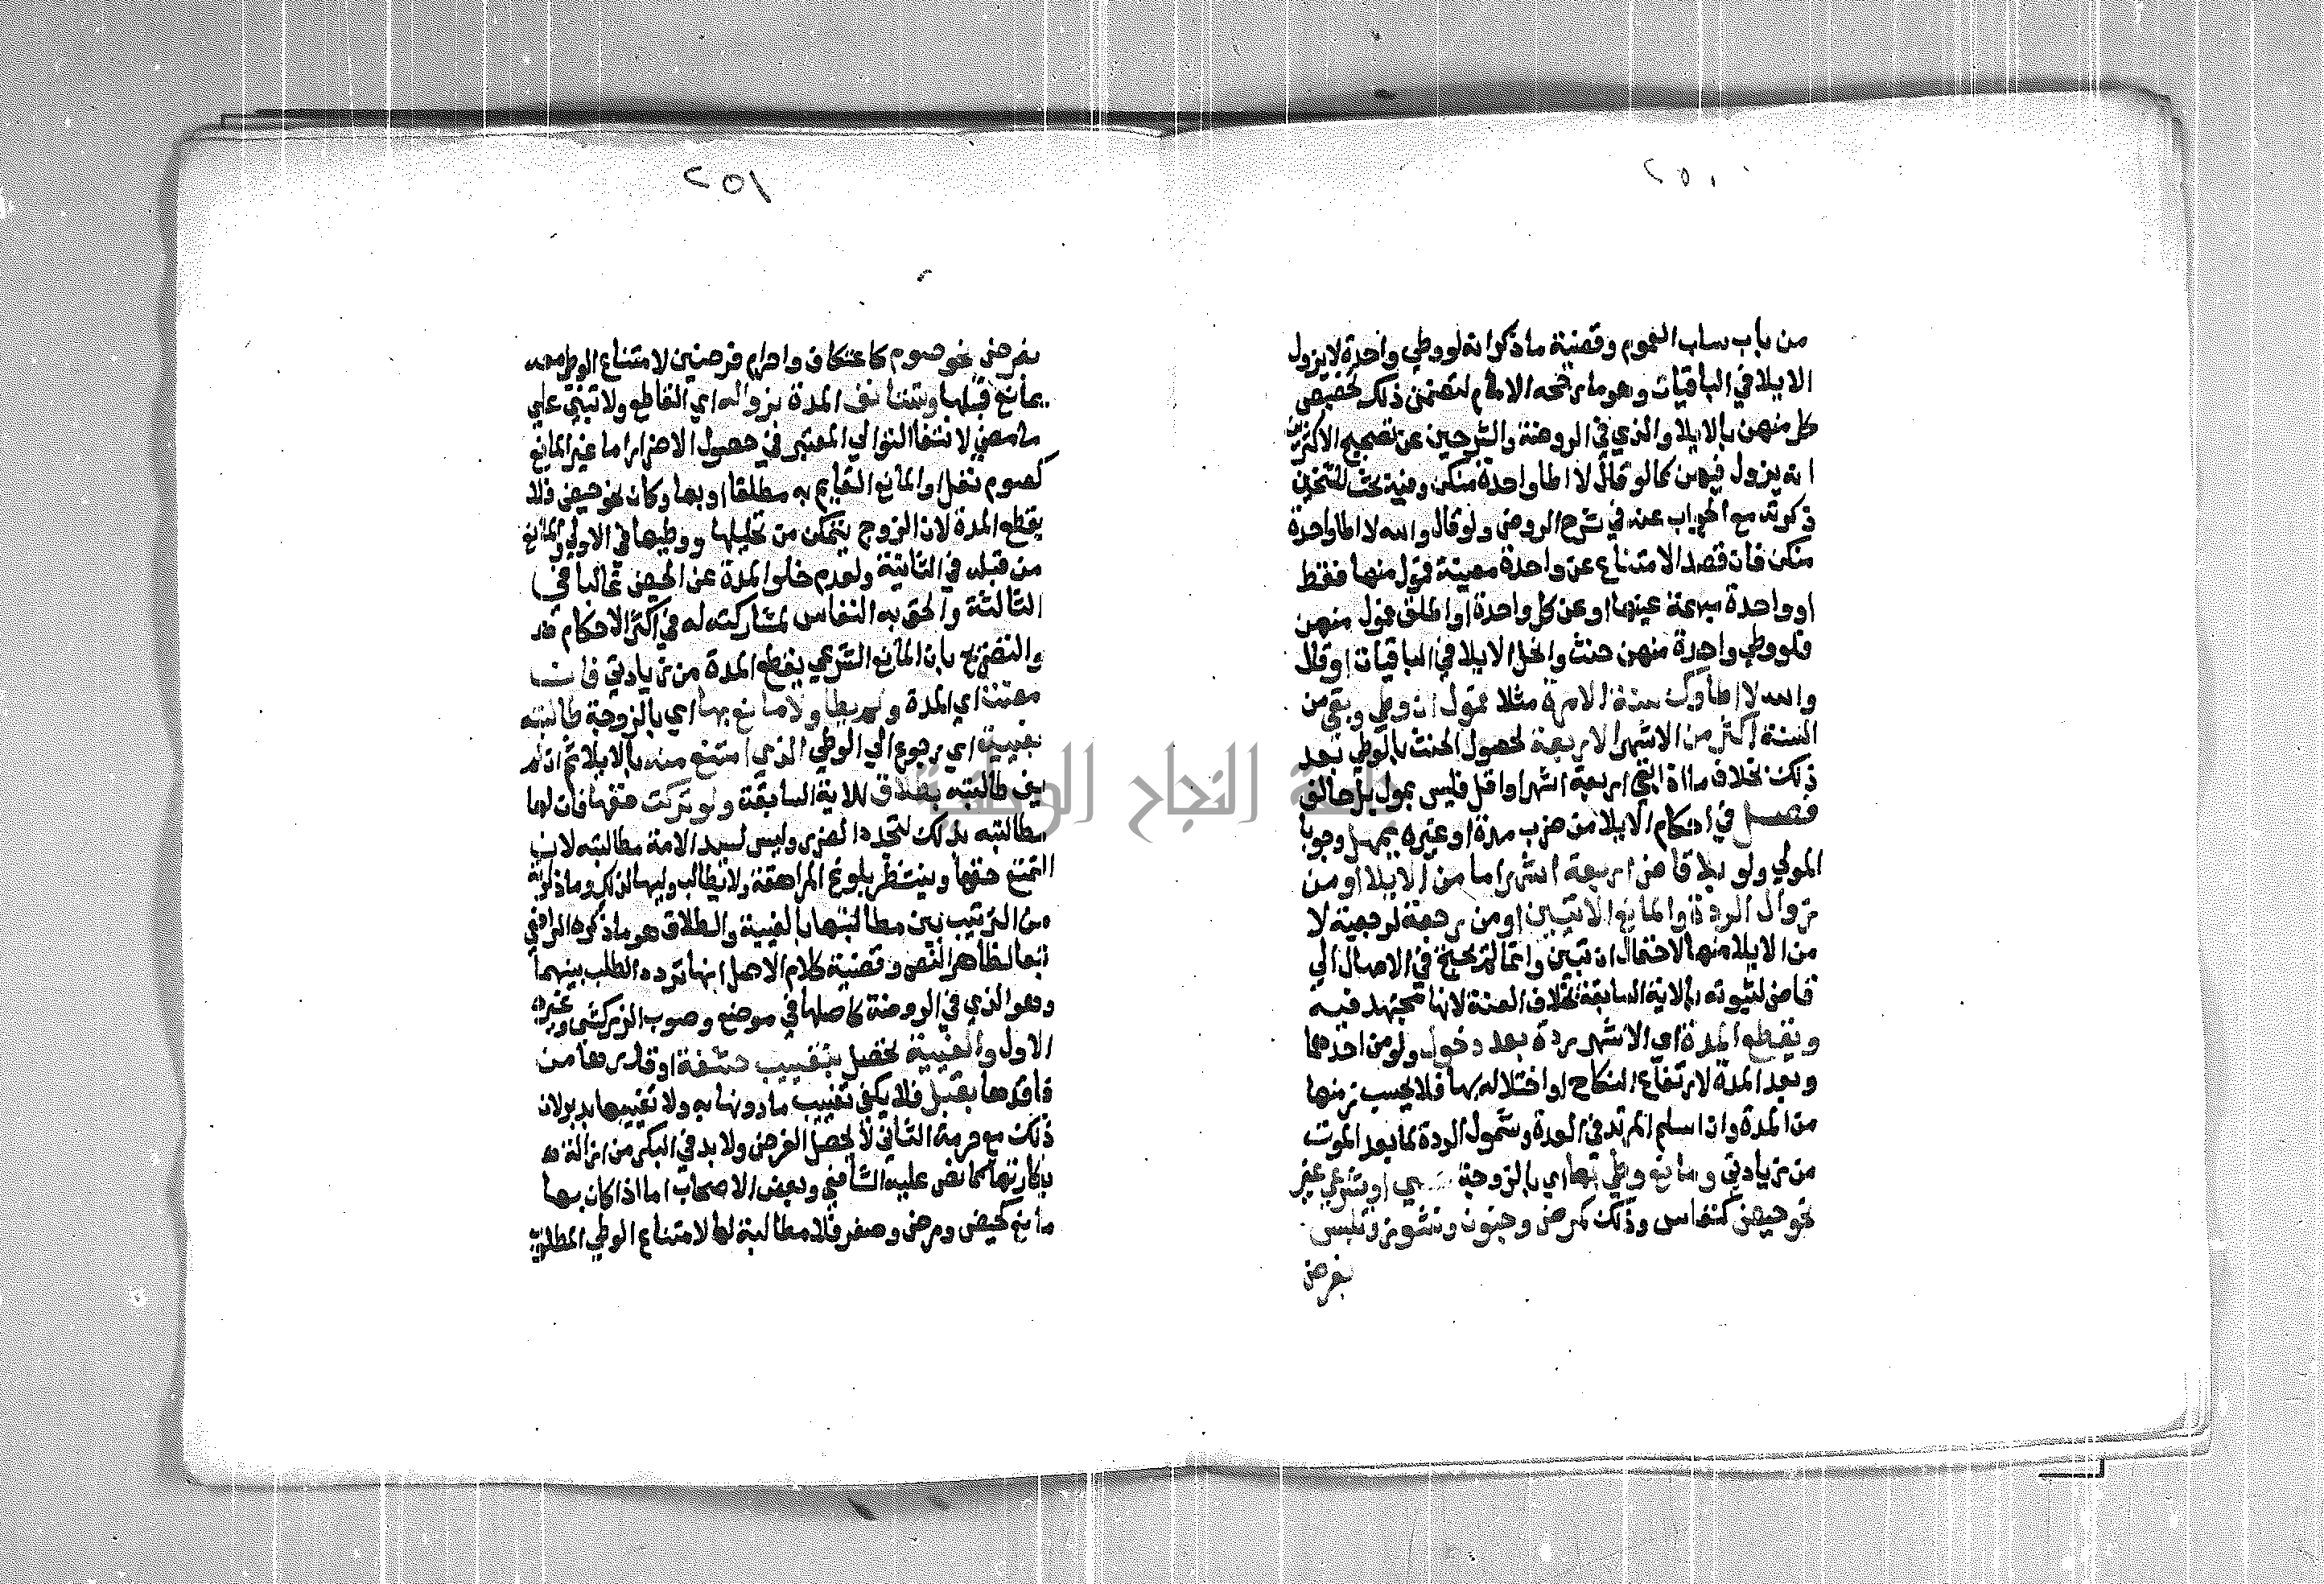 ٢٥٠
من باب سلب العموم وقضية ما ذكرانه لو وطي واحدة لا يزول
الايلا في الباقيات وهو ما رجحه الامام لتضمن ذلك تخصيص
كل منهن بالايلا والذي في الروضة والشرحين عن تصحيح الاكثرين
انه يزول فيهن كما لو قال لا اطا واحدة منكن وفيه بحث للشيخين
ذكرته مع الجواب عنه في شرح الروض ولو قال والله لا اطا واحدة
منكن فان قصد الامتناع عن واحدة معينة فمول منها فقط
او واحدة مبهمة عينها او عن كل واحدة او اطلق فمول منهن
فلو وطي واحدة منهن حنث وانحل الايلا في الباقيات او قال
والله لا اطاوك سنة الا مرة مثلا فمول ان وطي وبقي من
السنة اكثر من الاشهر الاربعة لحصول الحنث بالوطي بعد
ذلك بخلاف ما اذا بقي اربعة اشهر او اقل فليس بمول بل حالف
فصل في احكام الايلا من ضرب مدة او غيره يمهل وجوبا
المولي ولو بلا قاض اربعة اشهر اما من الايلا او من
زوال الردة والمانع الاتيين او من رجعة لرجعية لا
من الايلا منها لاحتمال ان تبين وانما لم يحتج في الامهال الي
قاض لثبوته بالاية السابقة بخلاف العنة لانها مجتهد فيه
ويقطع المدة اي الاشهر ردة بعد دخول ولو من احدهما
وبعد المدة لارتفاع النكاح او اختلاله بها فلا يحسب زمنها
من المدة وان اسلم المرتد في العدة وشمول الردة لما بعد الموت
من زيادتي ومانع وطي بها اي بالزوجة حسي او شرعي غير
نحو حيض كنفاس وذلك كمرض وجنون ونشوز وتلبس
بفرض
٢٥١
بفرض نحو صوم كاعتكاف واحرام فرضين لامتناع الوطي معه
بمانع قبلها وتستانف المدة بزواله اي القاطع ولا تبني علي
ما مضي لانتفا التوالي المعتبر في حصول الاضرار اما غير المانع
كصوم نفل او المانع القايم به مطلقا او بها وكان نحو حيض فلا
يقطع المدة لان الزوج يتمكن من تحليلها ووطيها في الاولي والمانع
من قبله في الثانية ولعدم خلو المدة عن الحيض غالبا في
الثالثة والحق به النفاس لمشاركته له في اكثر الاحكام
والتصريح بان المانع الشرعي يقطع المدة من زيادتي فان
مضت اي المدة ولم يطا ولا مانع بها اي بالزوجة طالبته
بفيية اي رجوع الي الوطي الذي امتنع منه بالايلا ثم ان لم
يف طالبته بطلاق للاية السابقة ولو تركت حقها فان لها
مطالبته بذلك لتجدد الضرر وليس لسيد الامة مطالبته لان
التمتع حقها وينتظر بلوغ المراهقة ولا يطالب وليها لذلك وما ذكرته
من الترتيب بين مطالبتها بالفيية والطلاق هو ما ذكره الرافعي
تبعا لظاهر النص وقضية كلام الاصل انها تردد الطلب بينهما
وهو الذي في الروضة كاصلها في موضع وصوب الزركشي وغيره
الاول والفيية تحصل بتغييب حشفة او قدرها من
فاقدها بقبل فلا يكفي تغييب ما دونها به ولا تغييبها بدبر لان
ذلك مع حرمة الثاني لا يحصل الغرض ولا بد في البكر من ازالة
بكارتها كما نص عليه الشافعي وبعض الاصحاب اما اذا كان بها
مانع كحيض ومرض وصغر فلا مطالبة لها لامتناع الوطي المطلوب